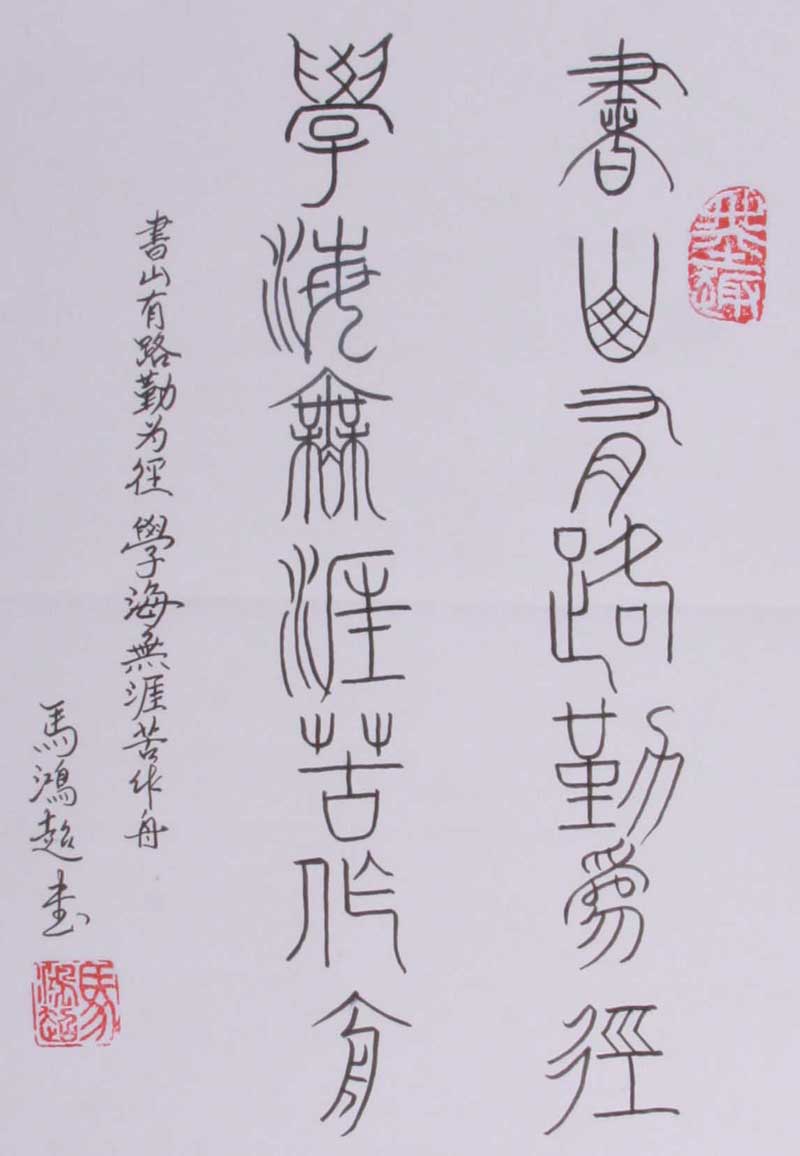 書山有路勤為徑
學海無涯苦作舟
書山有路勤为徑 學海無涯苦作舟
馬鴻超書
馬鴻超